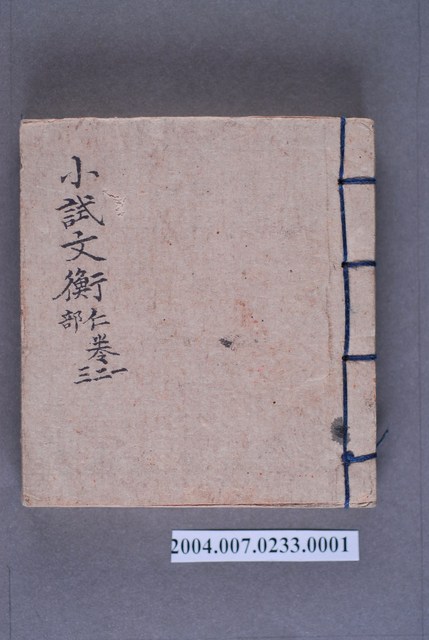 小試文衡
仁部
卷一二三
2004.007.0233.0001